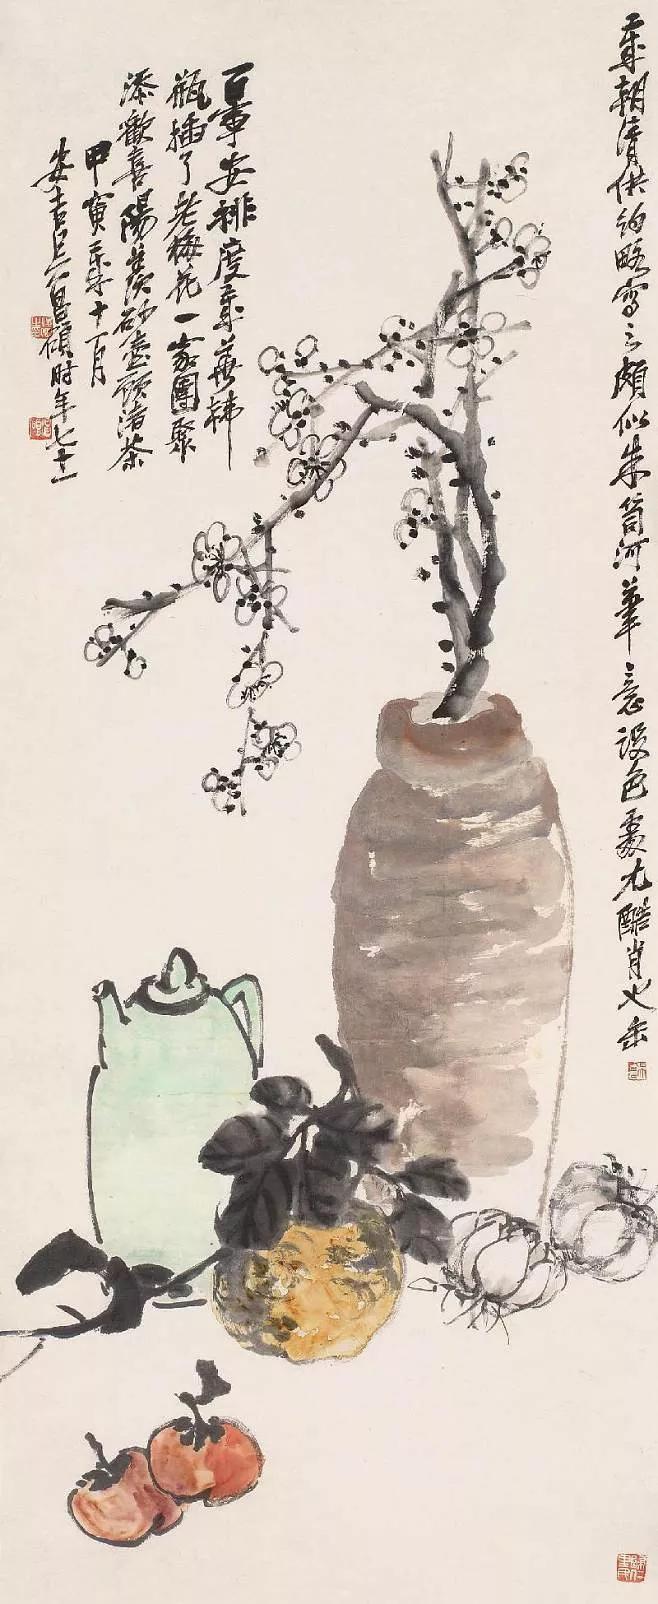 歲朝清供約略寫之頗似朱笥河筆意設色處尤酷肖也缶
百事安排度歲華
瓶插了老梅花一家團聚
添歡喜陽羨砂壺顧渚茶
甲寅歲十一月
安吉吳昌碩時年七十一